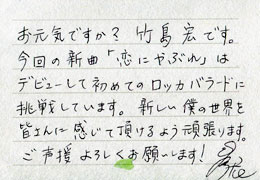 お元気ですか？ 竹島宏です。
今回の新曲「恋にやぶれ」は
デビューして初めてのロッカバラードに
挑戦しています。新しい僕の世界を
皆さんに感じて頂けるよう頑張ります。
ご声援よろしくお願いします！